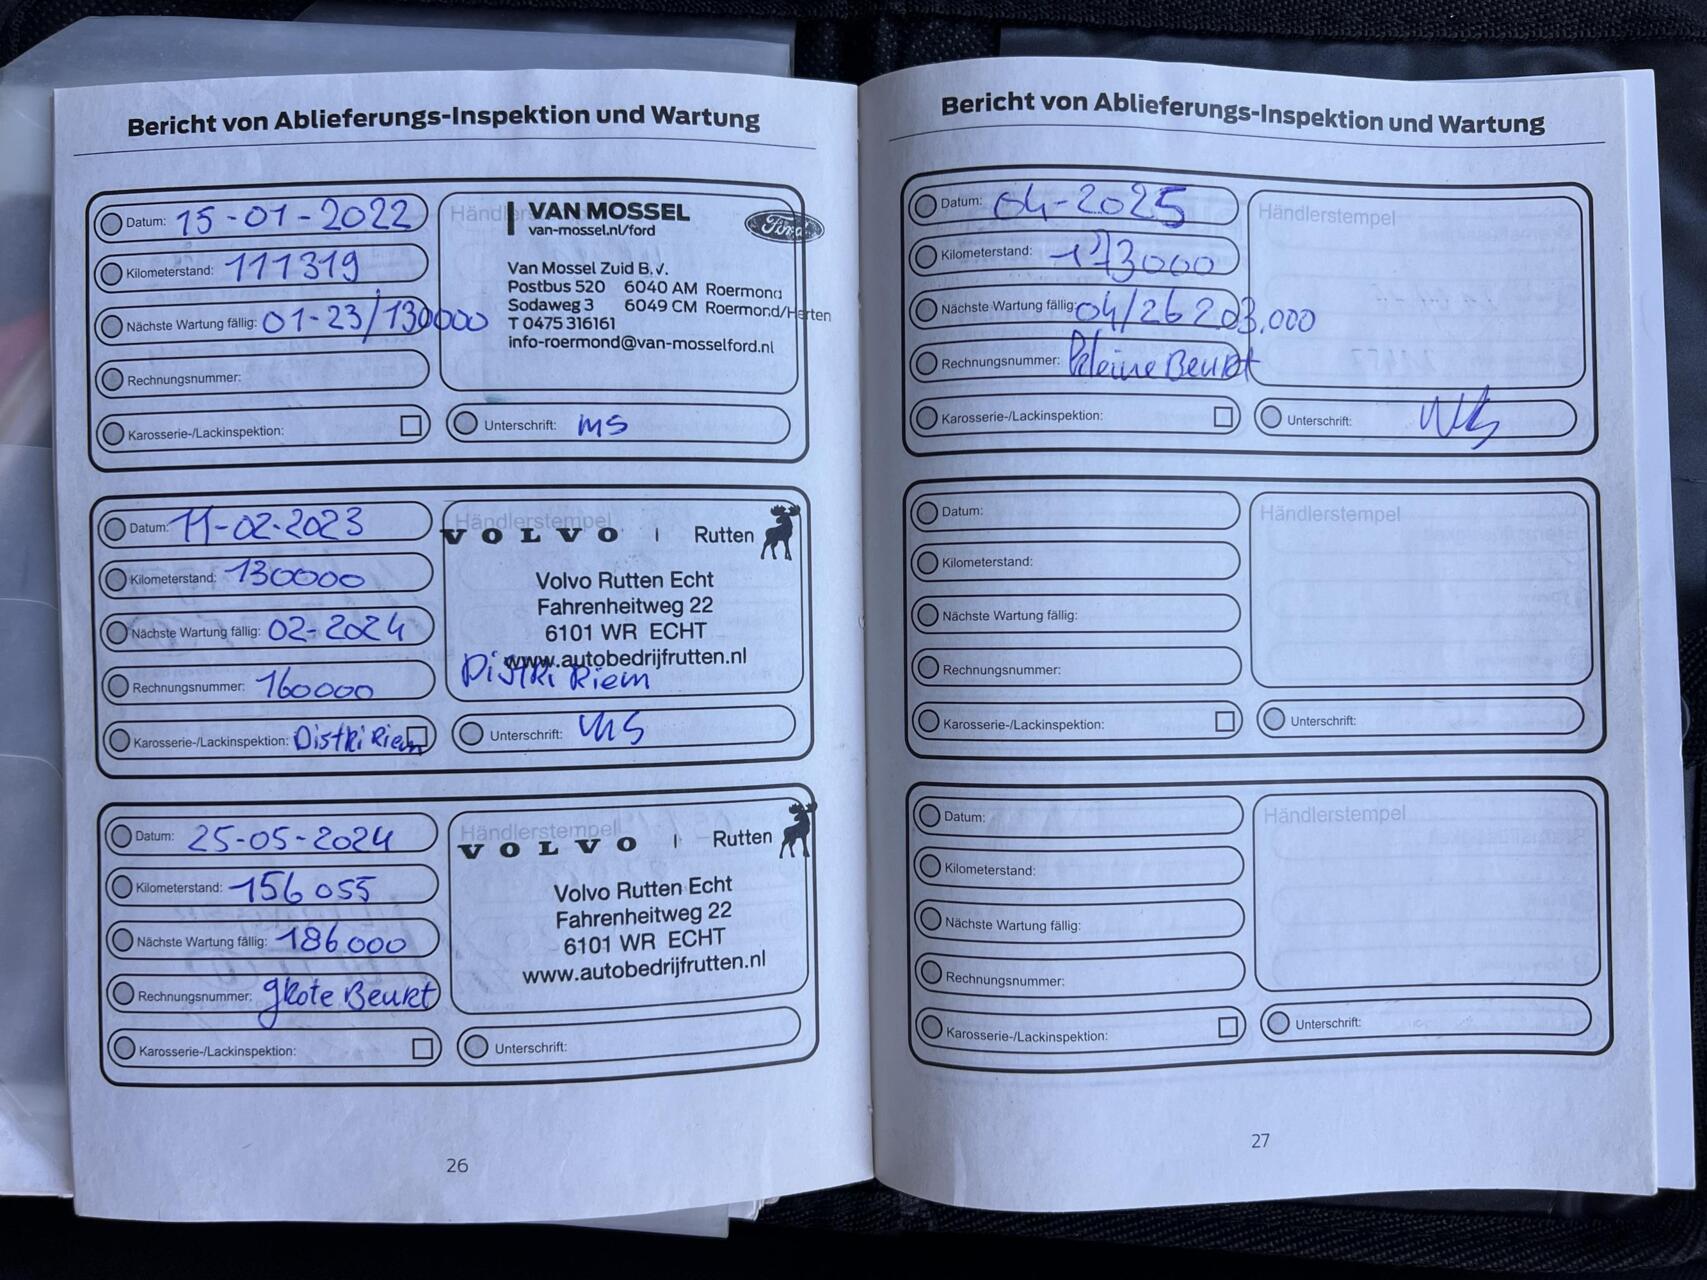 Bericht von Ablieferungs-Inspektion und Wartung
Datum: 15-01-2022
Kilometerstand: 111319
Nächste Wartung fällig: 01-23/130000
Rechnungsnummer:
Karosserie-/Lackinspektion:
Händlerstempel
VAN MOSSEL
van-mossel.nl/ford
Ford
Van Mossel Zuid B.V.
Postbus 520 6040 AM Roermond
Sodaweg 3 6049 CM Roermond/Herten
T 0475 316161
info-roermond@van-mosselford.nl
Unterschrift: MS
Datum: 11-02-2023
Kilometerstand: 130000
Nächste Wartung fällig: 02-2024
Rechnungsnummer: 160000
Karosserie-/Lackinspektion: Distri Riem
Händlerstempel
VOLVO | Rutten
Volvo Rutten Echt
Fahrenheitweg 22
6101 WR ECHT
www.autobedrijfrutten.nl
Distri Riem
Unterschrift:
Datum: 25-05-2024
Kilometerstand: 156055
Nächste Wartung fällig: 186000
Rechnungsnummer: grote Beurt
Karosserie-/Lackinspektion:
Händlerstempel
VOLVO | Rutten
Volvo Rutten Echt
Fahrenheitweg 22
6101 WR ECHT
www.autobedrijfrutten.nl
Unterschrift:
26
Bericht von Ablieferungs-Inspektion und Wartung
Datum: 04-2025
Kilometerstand: 173000
Nächste Wartung fällig: 04/26 203.000
Rechnungsnummer: kleine Beurt
Karosserie-/Lackinspektion:
Händlerstempel
Unterschrift:
Datum:
Kilometerstand:
Nächste Wartung fällig:
Rechnungsnummer:
Karosserie-/Lackinspektion:
Händlerstempel
Unterschrift:
Datum:
Kilometerstand:
Nächste Wartung fällig:
Rechnungsnummer:
Karosserie-/Lackinspektion:
Händlerstempel
Unterschrift:
27